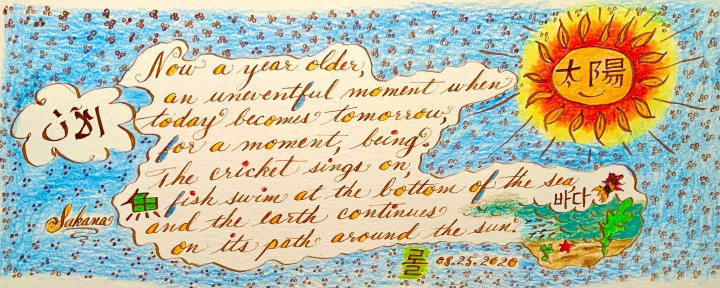 太陽
الآن
Now a year older,
an uneventful moment when
today becomes tomorrow,
for a moment, being.
The cricket sings on,
fish swim at the bottom of the sea
and the earth continues
on its path around the sun.
바다
Sakana
08.25.2020